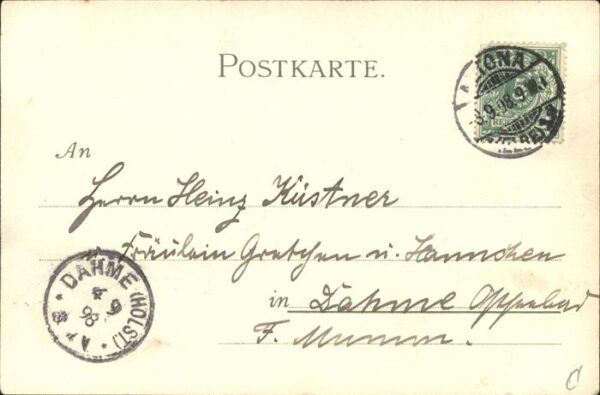 POSTKARTE.
ALTONA
9.98.9
An
Herrn Heinz Küstner
Fräulein Gretchen u. Hannchen
in Dahme Ostseebad
F.
DAHME (HOLST)
4 9
98